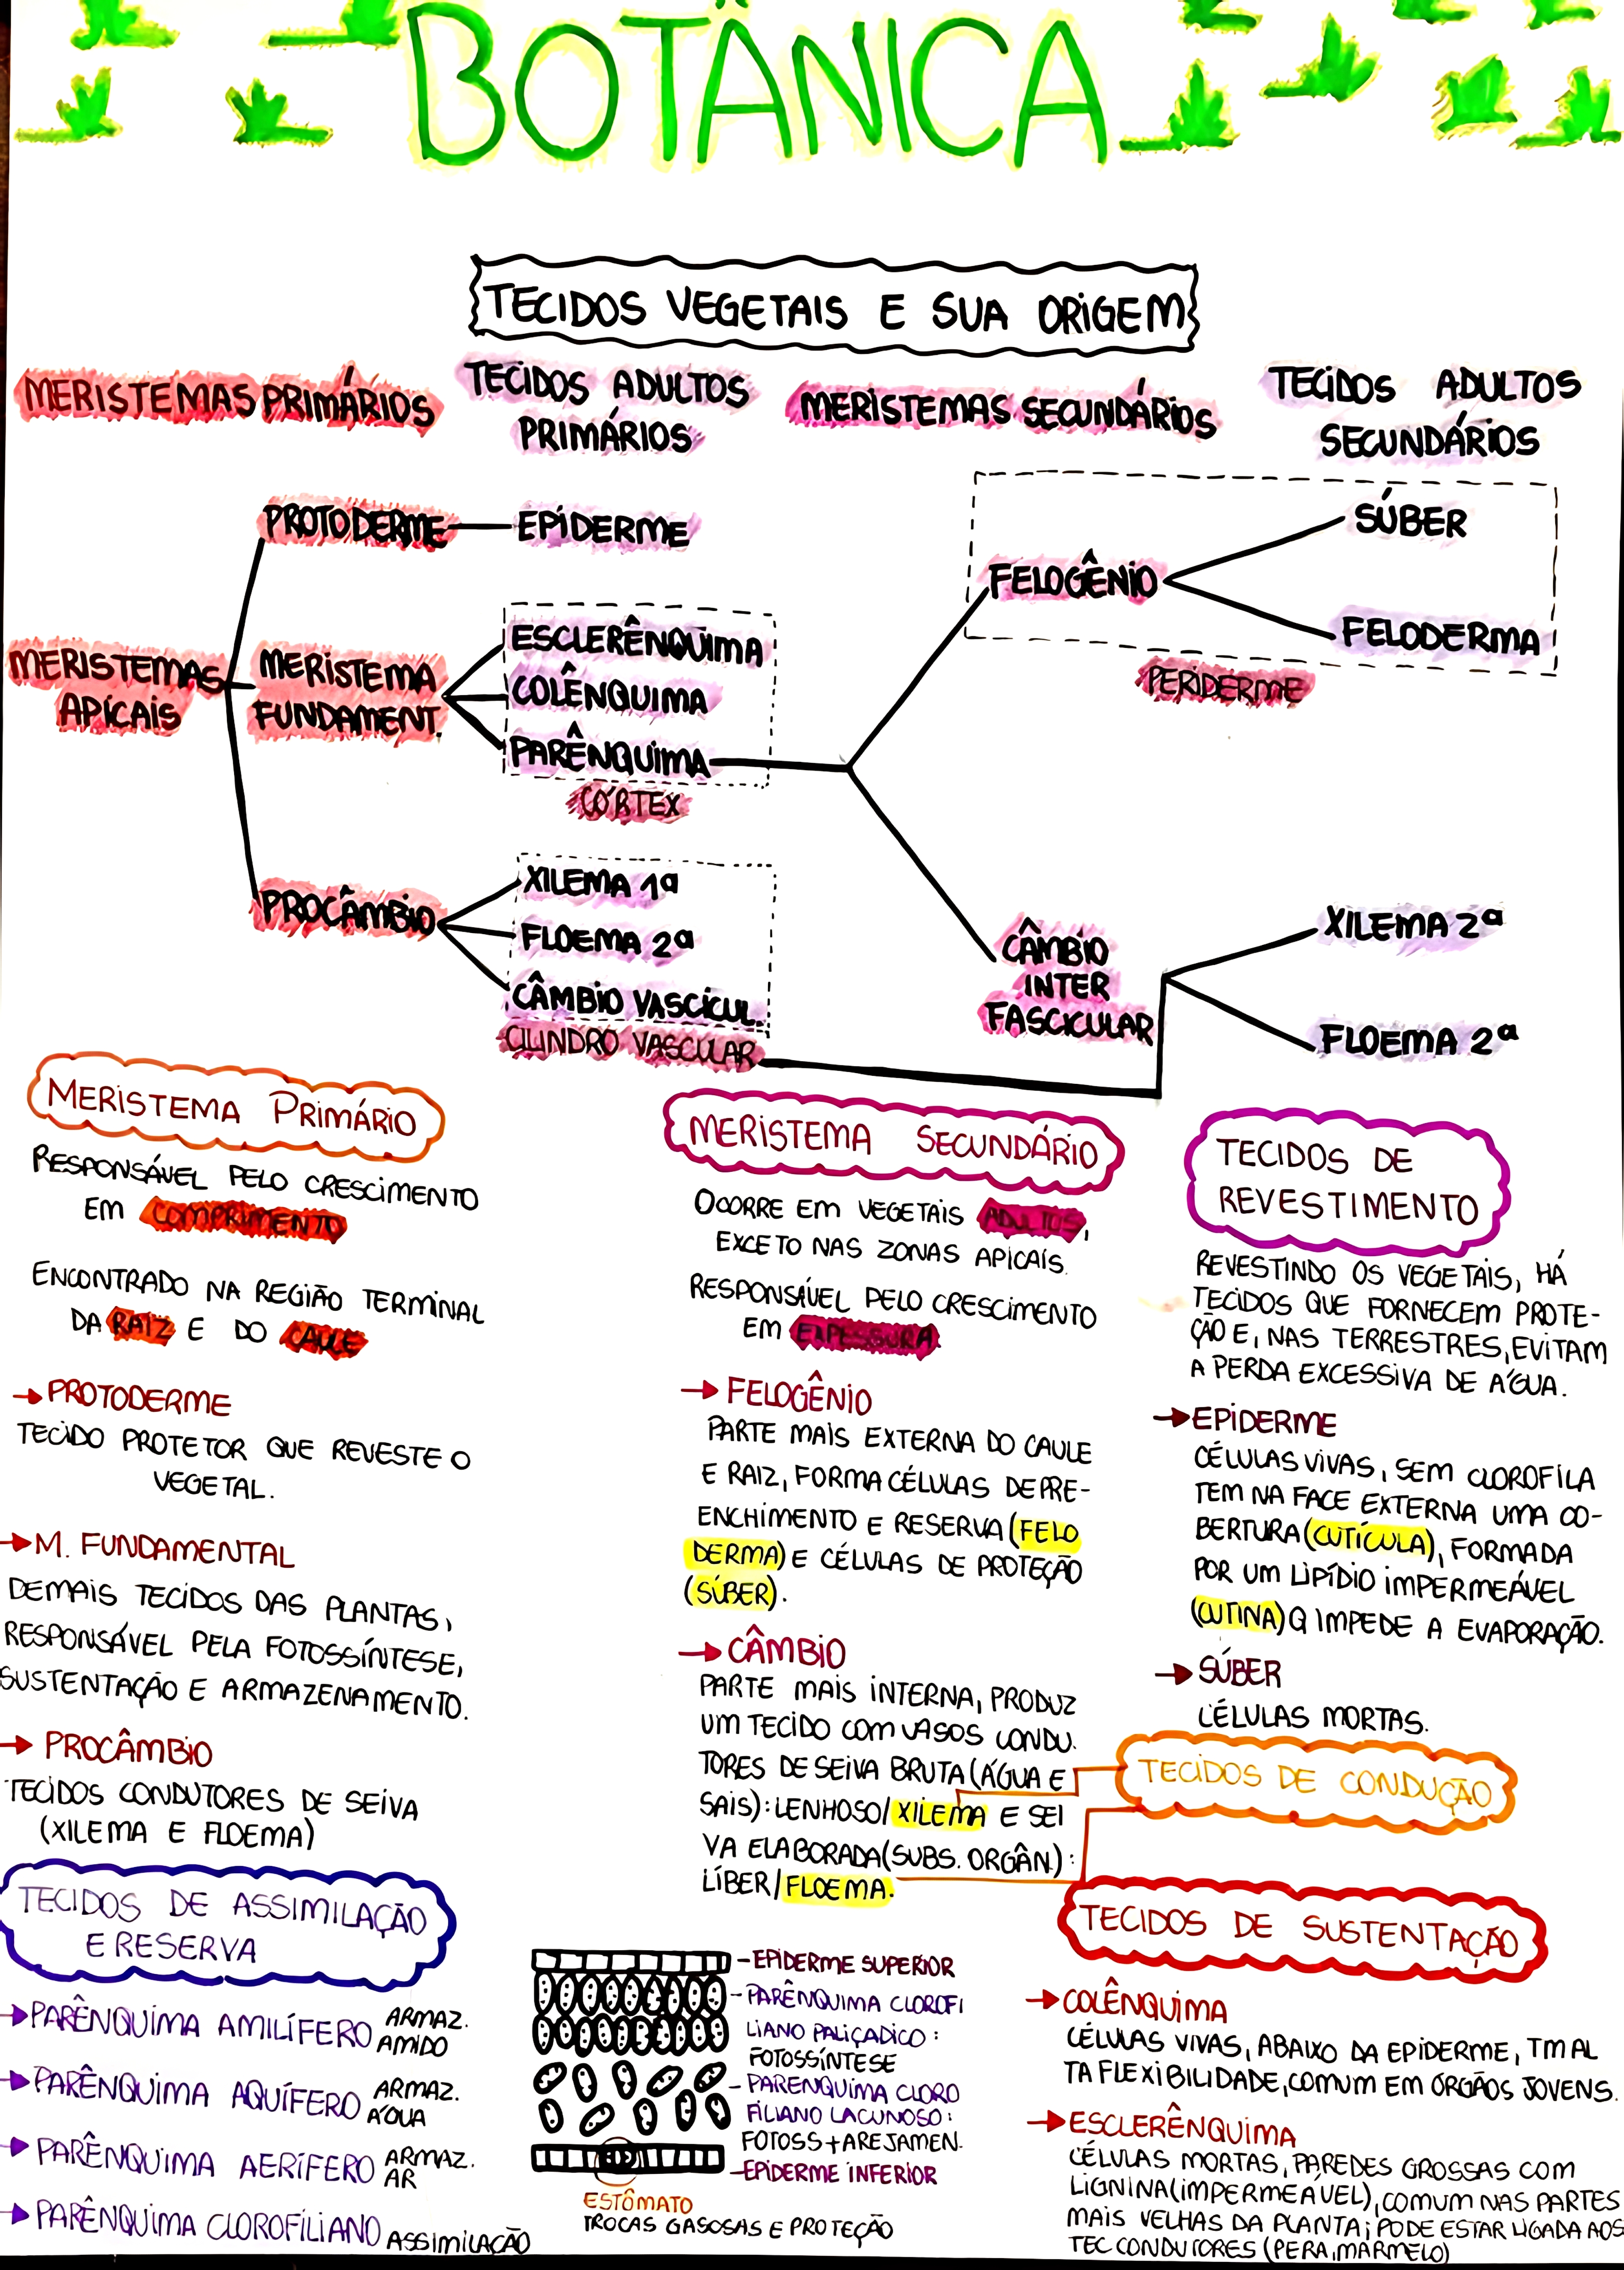 BOTÂNICA
TECIDOS VEGETAIS E SUA ORIGEM
MERISTEMAS PRIMÁRIOS
TECIDOS ADULTOS
PRIMÁRIOS
MERISTEMAS SECUNDÁRIOS
TECIDOS ADULTOS
SECUNDÁRIOS
MERISTEMAS
APICAIS
PROTODERME
MERISTEMA
FUNDAMENT.
PROCÂMBIO
EPIDERME
ESCLERÊNQUIMA
COLÊNQUIMA
PARÊNQUIMA
CÓRTEX
XILEMA 1ª
FLOEMA 2ª
CÂMBIO VASCÍCUL.
CILINDRO VASCULAR
FELOGÊNIO
SÚBER
FELODERMA
PERIDERME
CÂMBIO
INTER
FASCICULAR
XILEMA 2ª
FLOEMA 2ª
MERISTEMA PRIMÁRIO
RESPONSÁVEL PELO CRESCIMENTO
EM COMPRIMENTO
ENCONTRADO NA REGIÃO TERMINAL
DA RAIZ E DO CAULE
→ PROTODERME
TECIDO PROTETOR QUE REVESTE O
VEGETAL.
→ M. FUNDAMENTAL
DEMAIS TECIDOS DAS PLANTAS,
RESPONSÁVEL PELA FOTOSSÍNTESE,
SUSTENTAÇÃO E ARMAZENAMENTO.
→ PROCÂMBIO
TECIDOS CONDUTORES DE SEIVA
(XILEMA E FLOEMA)
TECIDOS DE ASSIMILAÇÃO
E RESERVA
→ PARÊNQUIMA AMILÍFERO ARMAZ.
AMIDO
→ PARÊNQUIMA AQUÍFERO ARMAZ.
ÁGUA
→ PARÊNQUIMA AERÍFERO ARMAZ.
AR
→ PARÊNQUIMA CLOROFILIANO ASSIMILAÇÃO
MERISTEMA SECUNDÁRIO
OCORRE EM VEGETAIS ADULTOS,
EXCETO NAS ZONAS APICAIS.
RESPONSÁVEL PELO CRESCIMENTO
EM EXPESSURA.
→ FELOGÊNIO
PARTE MAIS EXTERNA DO CAULE
E RAIZ, FORMA CÉLULAS DE PRE-
ENCHIMENTO E RESERVA (FELO
DERMA) E CÉLULAS DE PROTEÇÃO
(SÚBER).
→ CÂMBIO
PARTE MAIS INTERNA, PRODUZ
UM TECIDO COM VASOS CONDU.
TORES DE SEIVA BRUTA (ÁGUA E
SAIS): LENHOSO/XILEMA E SEI
VA ELABORADA (SUBS. ORGÂN.):
LÍBER/FLOEMA.
- EPIDERME SUPERIOR
- PARÊNQUIMA CLOROFI
LIANO PALIÇADICO:
FOTOSSÍNTESE
- PARENQUIMA CLORO
FILIANO LACUNOSO:
FOTOSS + AREJAMEN.
- EPIDERME INFERIOR
ESTÔMATO
TROCAS GASOSAS E PROTEÇÃO
TECIDOS DE
REVESTIMENTO
REVESTINDO OS VEGETAIS, HÁ
TECIDOS QUE FORNECEM PROTE-
ÇÃO E, NAS TERRESTRES, EVITAM
A PERDA EXCESSIVA DE ÁGUA.
→ EPIDERME
CÉLULAS VIVAS, SEM CLOROFILA
TEM NA FACE EXTERNA UMA CO-
BERTURA (CUTÍCULA), FORMADA
POR UM LIPÍDIO IMPERMEÁVEL
(CUTINA) Q IMPEDE A EVAPORAÇÃO.
→ SÚBER
CÉLULAS MORTAS.
TECIDOS DE CONDUÇÃO
TECIDOS DE SUSTENTAÇÃO
→ COLÊNQUIMA
CÉLULAS VIVAS, ABAIXO DA EPIDERME, TM AL
TA FLEXIBILIDADE, COMUM EM ÓRGÃOS JOVENS.
→ ESCLERÊNQUIMA
CÉLULAS MORTAS, PAREDES GROSSAS COM
LIGNINA (IMPERMEÁVEL), COMUM NAS PARTES
MAIS VELHAS DA PLANTA; PODE ESTAR LIGADA AOS
TEC CONDUTORES (PERA, MARMELO)